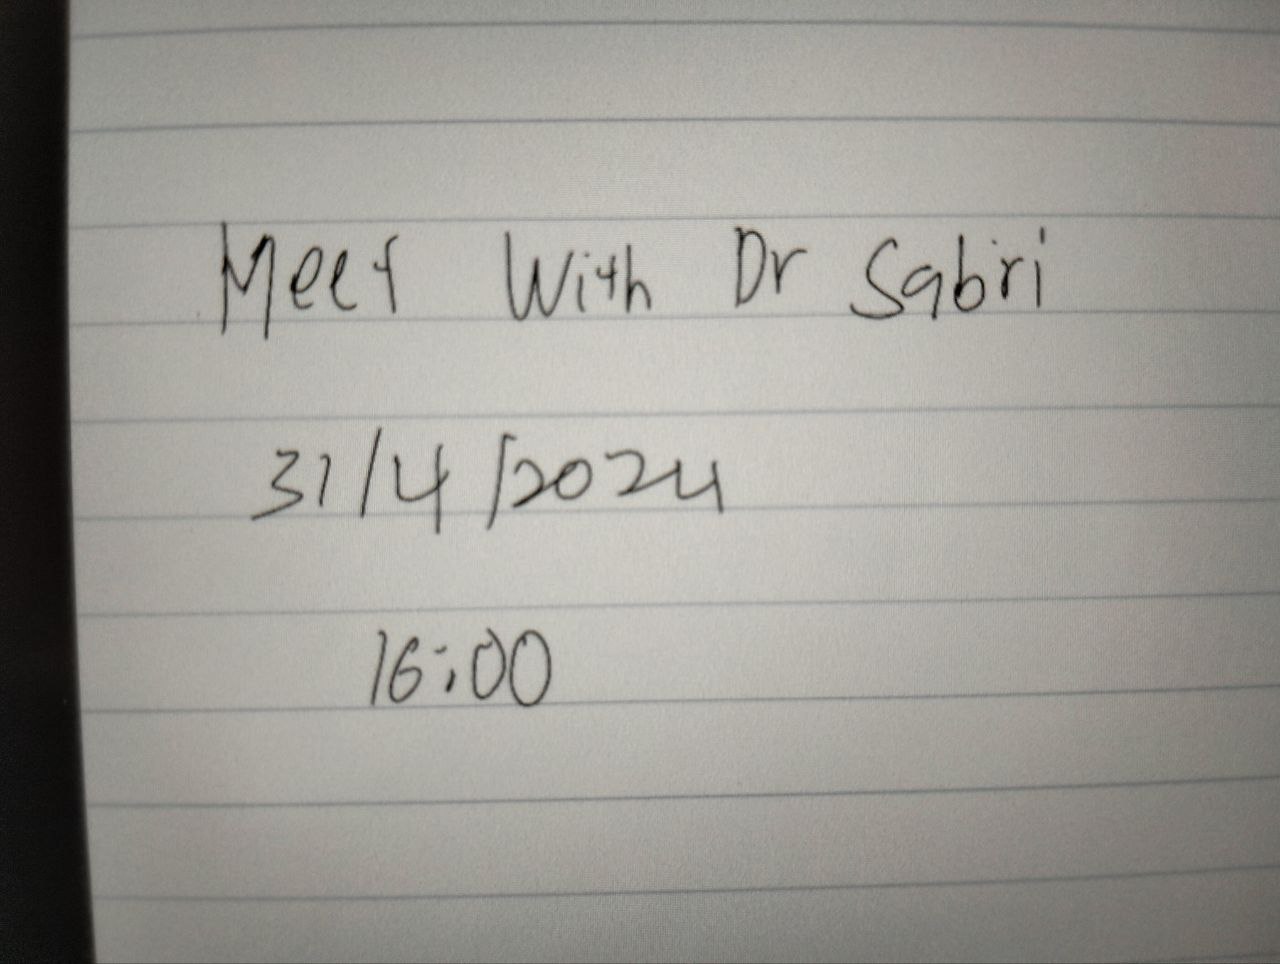 Meet With Dr Sabri
31/4/2024
16:00